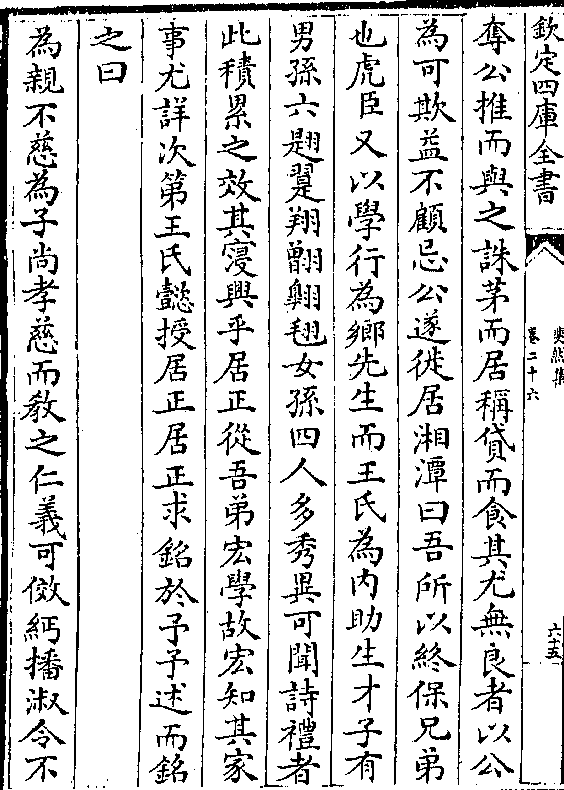 欽定四庫全書
斐然集
卷二十六
六十五
奪公推而與之誅茅而居稱貸而食其尤無良者以公
為可欺益不顧忌公遂徙居湘潭曰吾所以終保兄弟
也虎臣又以學行為鄉先生而王氏為內助生才子有
男孫六翃翼翔翿翺翃女孫四人多秀異可聞詩禮者
此積累之效其寖興乎居正從吾弟宏學故宏知其家
事尤詳次第王氏懿授居正居正求銘於予予述而銘
之曰
為親不慈為子尚孝慈而教之仁義可傚紆播淑令不